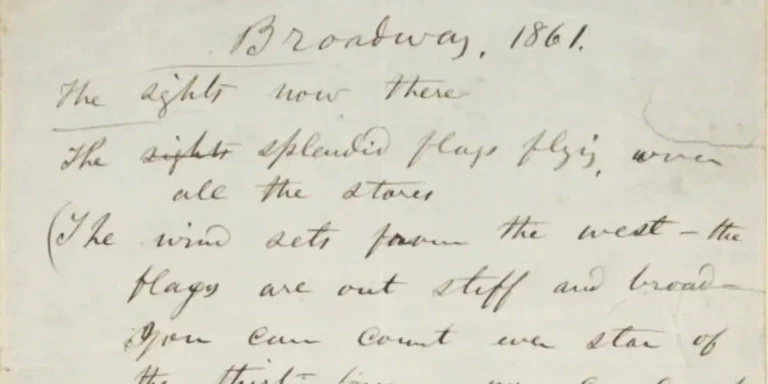 Broadway, 1861.
The sights now there
The sights splendid flags flying, over
all the stores
(The wind sets from the west – the
flags are out stiff and broad –
You can count ever star of
the thirt